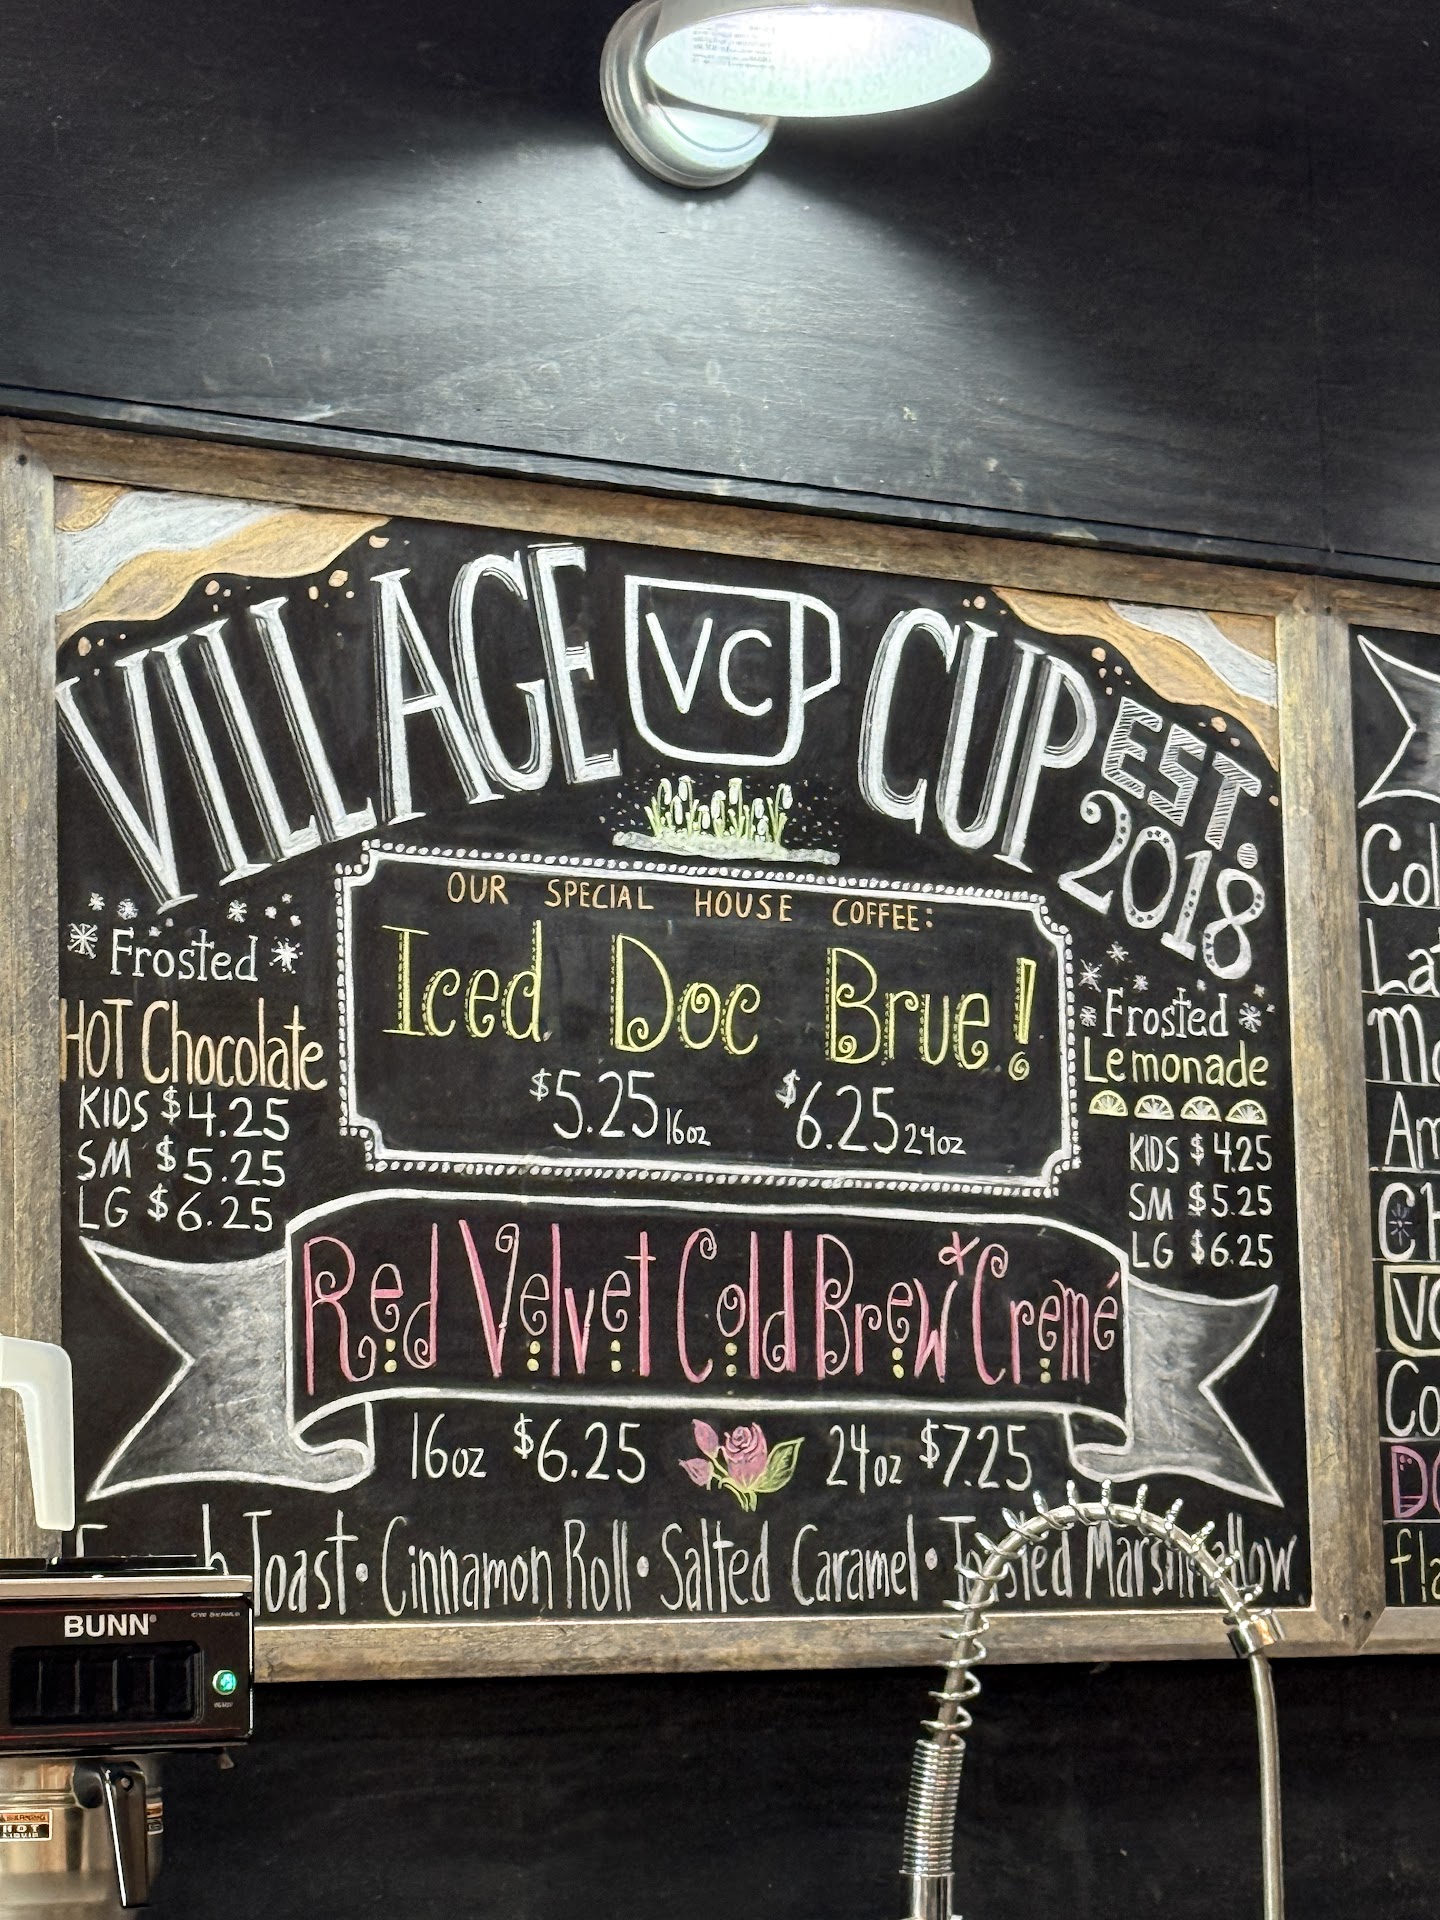 VILLAGE VC CUP
EST.
2018
OUR SPECIAL HOUSE COFFEE:
Iced Doc Brue!
$5.25 16oz $6.25 24oz
Frosted
HOT Chocolate
KIDS $4.25
SM $5.25
LG $6.25
Frosted
Lemonade
KIDS $4.25
SM $5.25
LG $6.25
Red Velvet Cold Brew * Cremé
16oz $6.25 24oz $7.25
Toast • Cinnamon Roll • Salted Caramel • Toasted Marshmallow
BUNN®
HOT
LIQUID